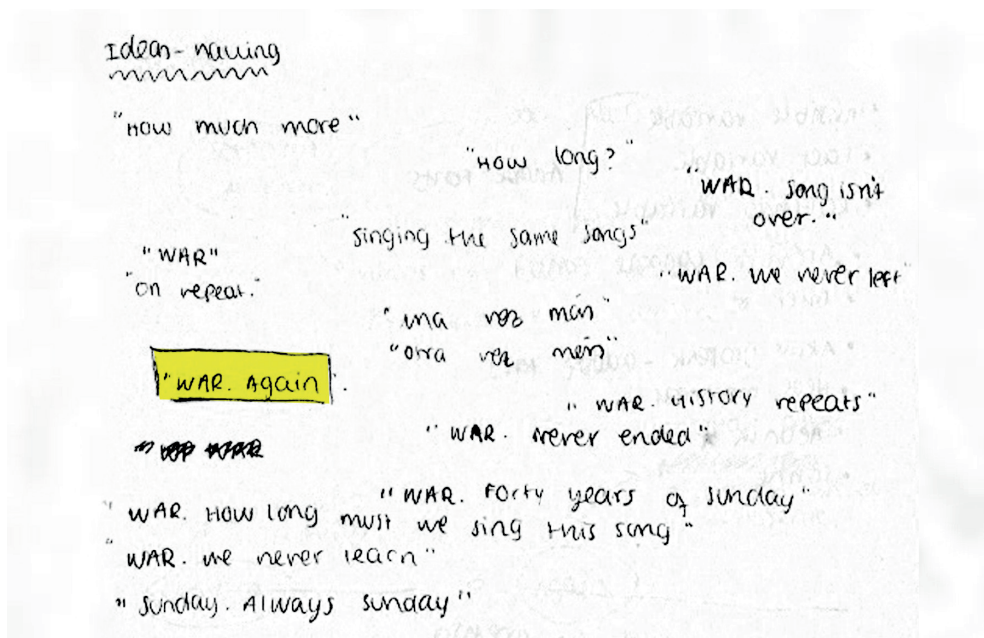 Ideas - naming
"How much more"
"How long?"
"WAR. Song isn't
over."
"singing the same songs"
"WAR"
"on repeat."
"WAR. We never left"
"una vez más"
"otra vez más"
"WAR. Again
"WAR. History repeats"
"WAR. Never ended"
"WAR. Forty years of Sunday"
"WAR. How long must we sing this song"
"WAR. We never learn"
"Sunday. Always Sunday"